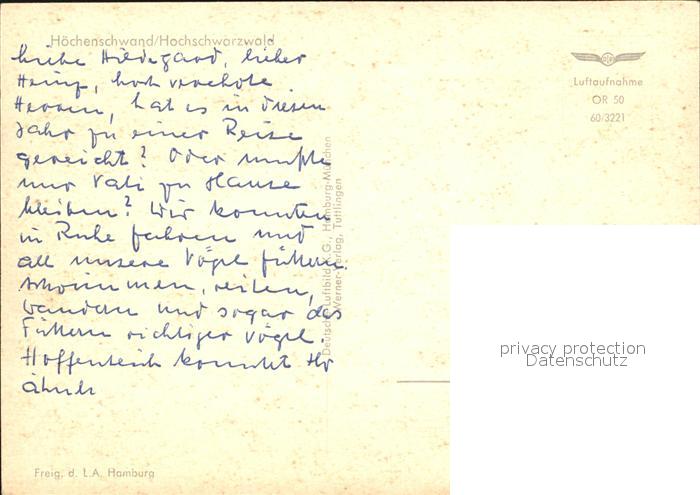 Höchenschwand/Hochschwarzwald
Liebe Hildegard, lieber
Heinz, hoch verehrte
Herren, hat es in diesem
Jahr zu einer Reise
gereicht? Oder mußte
nur Vati zu Hause
bleiben? Wir konnten
in Ruhe fahren und
all unsere Vögel füttern.
schwimmen, reiten,
wandern und sogar das
Füttern richtiger Vögel.
Hoffentlich konntet Ihr
ähnli
Luftaufnahme
OR 50
60/3221
Deutsche Luftbild K.G., Hamburg-München
Werner-Verlag, Tuttlingen
privacy protection
Datenschutz
Freig. d. L.A. Hamburg